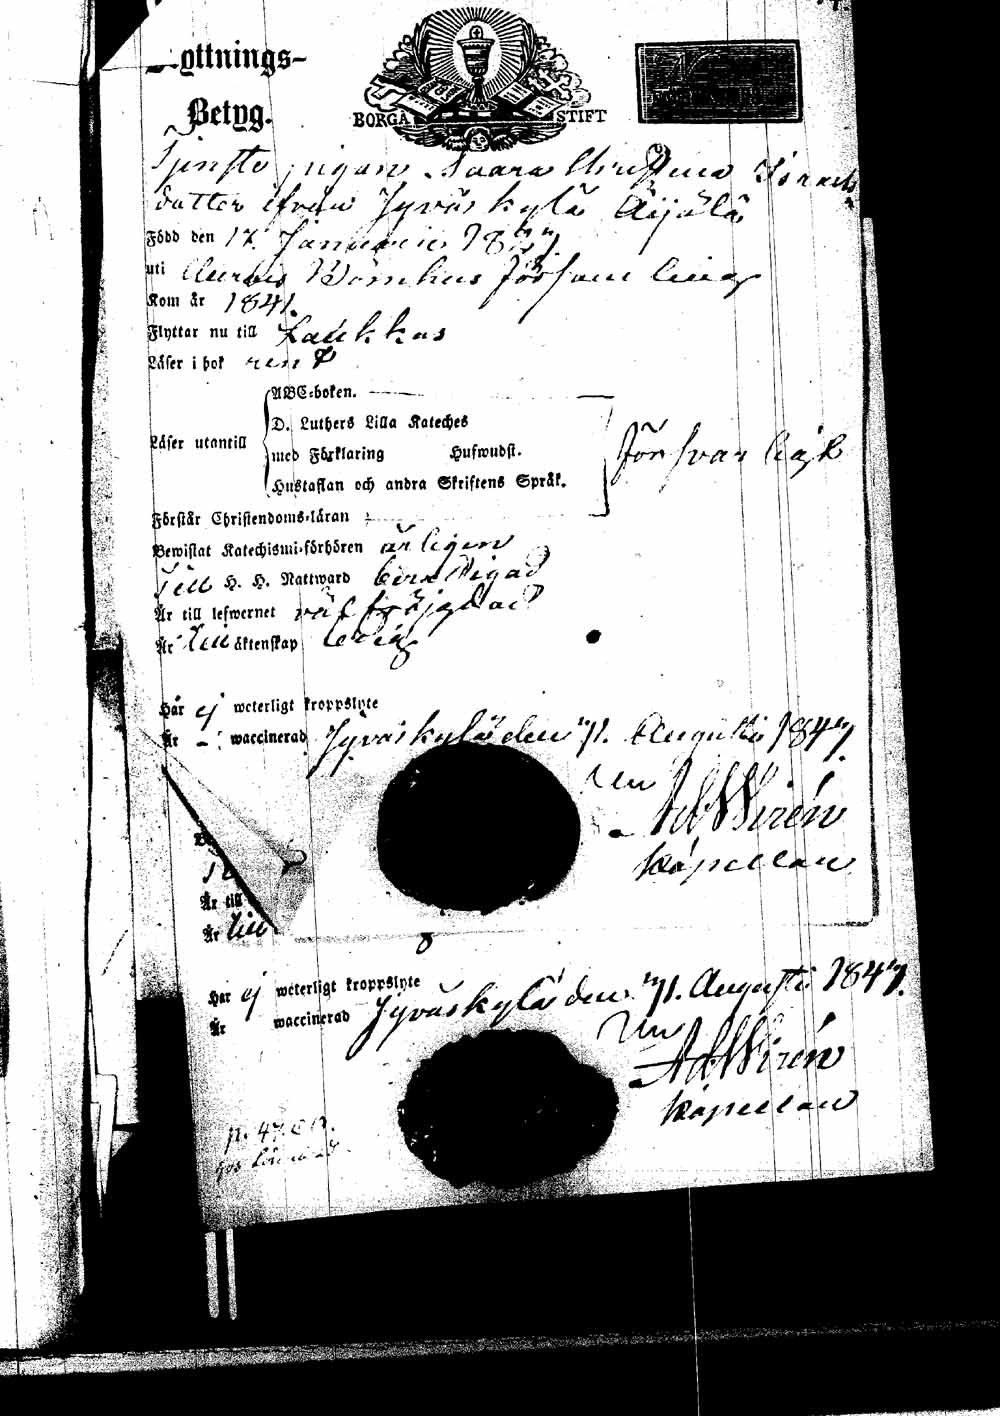 yttnings-
Betyg.
BORGÅ STIFT
Tjenste pigan Saara Christina Israels
dotter ifrån Jyväskylä Äijälä
Född den 17. Januarii
uti
Kom år 1841.
Flyttar nu till Laukkas
Läser i bok rent
ABC-boken.
D. Luthers Lilla Kateches
Läser utantill
med Förklaring Hufwudst.
Hustaflan och andra Skriftens Språk.
försvarligt
Förstår Christendoms-läran
Bewistat Katechismi-förhören årligen
Till H. H. Nattward berättigad
Är till lefwernet väl frejdad
Är till äktenskap ledig
Har ej weterligt kroppslyte
Är - waccinerad Jyväskylä den 71. Augusti 1847.
Ad Wirén
Kapellan
Är till
Är till
Har ej weterligt kroppslyte
Är waccinerad Jyväskylä den 71. Augusti 1847.
Ad Wirén
Kapellan
p. 47.